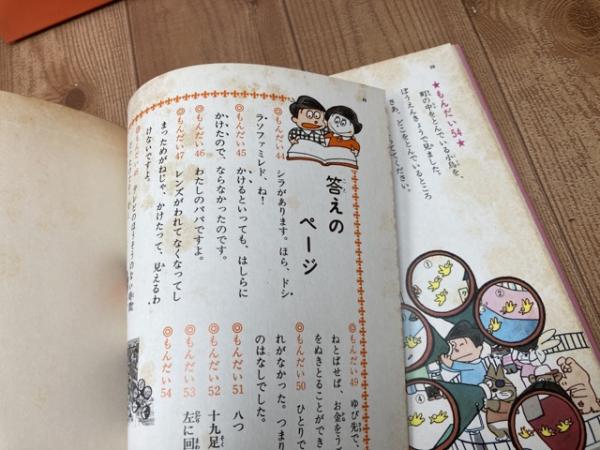 ★もんだい54★
町の中をとんでいる小鳥を、
ぼうえんきょうで見ました。
さあ、どこをとんでいるところ
答えの
ページ
◎もんだい44 シラがあります。ほら、ドシ
ラソファミレド、ね!
◎もんだい45 かけるといっても、はしらに
かけたので、ならなかったのです。
◎もんだい46 わたしのパパですよ。
◎もんだい47 レンズがわれてなくなってし
まっためがねじゃ、かけたって、見えるわ
けないですよ。
◎もんだい49 ゆび先で、
ねとばせば、お金をうご
をぬきとることができ
◎もんだい50 ひとりで
れがなかった。つまり
のはなしでした。
◎もんだい51 八つ
◎もんだい52 十九足
◎もんだい53 左に回
◎もんだい54